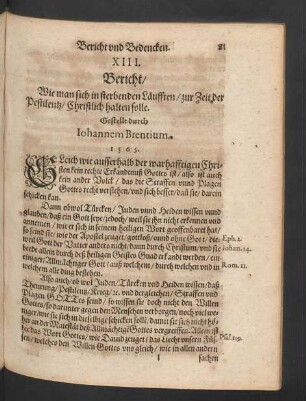 Bericht vnd Bedencken. 21
XIII.
Bericht/
Wie man sich in sterbenden Läufften/ zur Zeit der
Pestilentz/ Christlich halten solle.
Gestellt durch
Iohannem Brentium.
1565.
GLeich wie ausserhalb der warhafftigen Chri-
sten kein rechte Erkandtnuß Gottes ist/ also ist auch
kein ander Volck/ das die Straffen vnnd Plagen
Gottes recht verstehen/ vnd sich besser/ dañ sie/ darein
schicken kan.
Dann obwol Türcken/ Juden vnnd Heiden wissen vnnd
glauben/ daß ein Gott seye: jedoch/ weil sie jhn nit erkennen vnd
annemen/ wie er sich in seinem heiligen Wort geoffenbaret hat/
so seind sie/ wie der Apostel zeuget/ gottloß/ vnnd ohne Gott/ die-
weil Gott der Vatter anders nicht dann durch Christum/ vnd sie
beide allein durch deß heiligen Geistes Gnad erkandt werden/ ein
einiger/ Allmächtiger Gott/ auß welchem/ durch welchen vnd in
welchem alle ding bestehet.
Eph. 2.
Iohan. 14.
Rom. 11.
Also auch/ ob wol Juden/ Türcken vnd Heiden wissen/ daß
Thewrung/ Pestilentz/ Krieg/ rc. vnd dergleichen/ Straffen vnd
Plagen GOTTes seind/ so wissen sie doch nicht den Willen
Gottes/ so darunter gegen den Menschen verborgen/ noch viel we-
niger/ wie sie sich in dieselbige schicken solle/ damit sie sich nicht hö-
her an der Majestät deß Allmächtigē Gottes vergreiffen. Allein ist
das Wort Gottes/ wie Dauid zeuget/ das Liecht vnsern Füs-
sen/ welches den Willen Gottes vns gleich/ wie in allen andern
Psal. 119.
I sachen